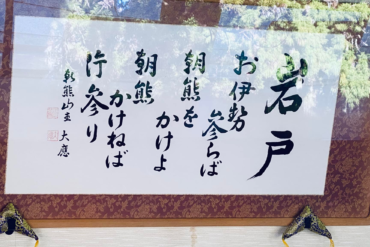 岩戸
お伊勢
参らば
朝熊を
かけよ
朝熊
かけねば
片参り
朝熊山主 大應